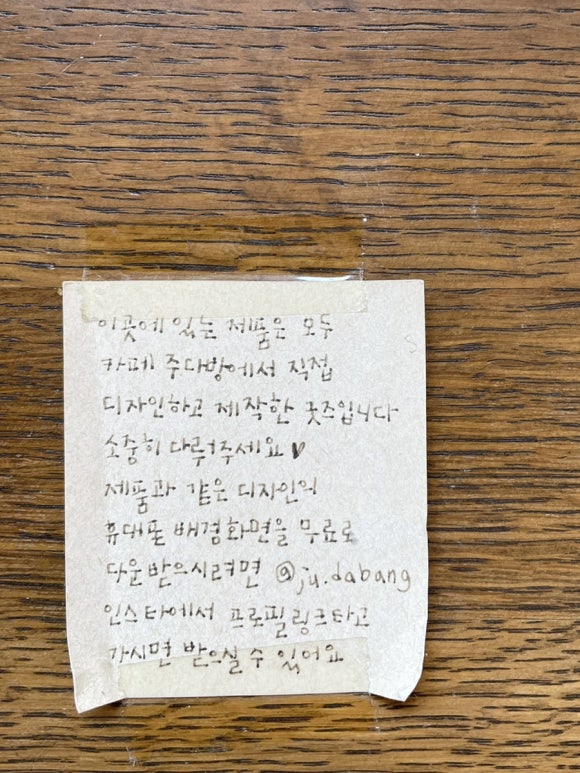 이곳에 있는 제품은 모두
카페 주다방에서 직접
디자인하고 제작한 굿즈입니다
소중히 다뤄주세요♥
제품과 같은 디자인의
휴대폰 배경화면을 무료로
다운받으시려면 @ju.dabang
인스타에서 프로필링크타고
가시면 받으실 수 있어요